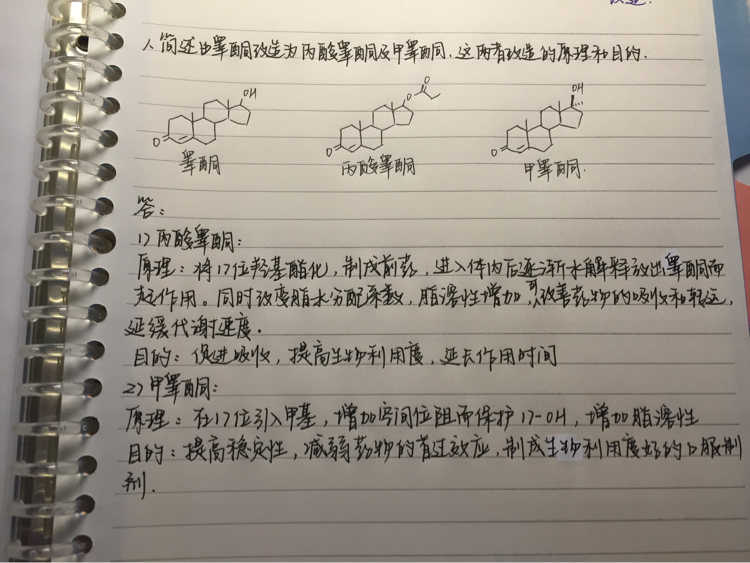 1、简述由睾酮改造为丙酸睾酮及甲睾酮，这两者改造的原理和目的.
OH
O
O
O
睾酮
O
丙酸睾酮
OH
O
甲睾酮.
答：
1) 丙酸睾酮：
原理：将17位羟基酯化，制成前药，进入体内后逐渐水解释放出睾酮而
起作用。同时改变脂水分配系数，脂溶性增加，可改善药物的吸收和转运，
延缓代谢速度.
目的：促进吸收，提高生物利用度，延长作用时间
2) 甲睾酮：
原理：在17位引入甲基，增加空间位阻而保护17-OH，增加脂溶性
目的：提高稳定性，减弱药物的首过效应，制成生物利用度好的口服制
剂.